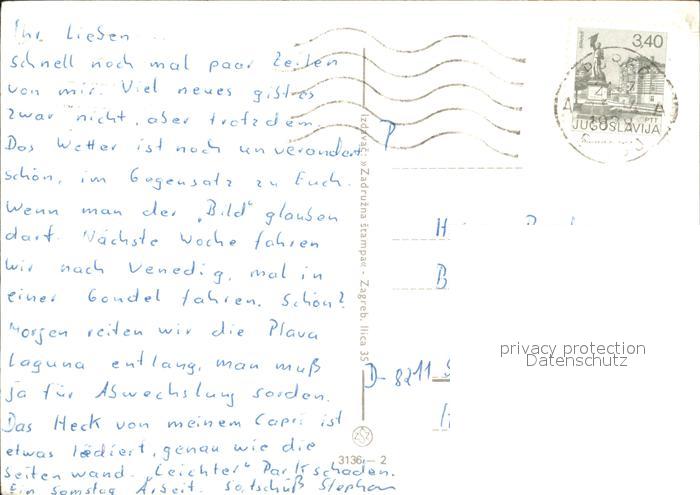 Ihr Lieben
schnell noch mal paar Zeilen
von mir. Viel neues gibt es
zwar nicht, aber trotzdem.
Das Wetter ist noch unverändert
schön, im Gegensatz zu Euch.
Wenn man der „Bild" glauben
darf. Nächste Woche fahren
wir nach Venedig, mal in
einer Gondel fahren. Schön?
Morgen reiten wir die Plava
Laguna entlang, man muß
ja für Abwechslung sorgen.
Das Heck von meinem Capri ist
etwas lädiert, genau wie die
Seitenwand. „Leichter" Parkschaden.
Ein Samstag Arbeit. So, tschüß Stephan
Izdavač: »Zadružna štampa« - Zagreb, Ilica 35
3136 — 2
3,40
PTT
JUGOSLAVIJA
P
H
B
D-8211 S
privacy protection
Datenschutz